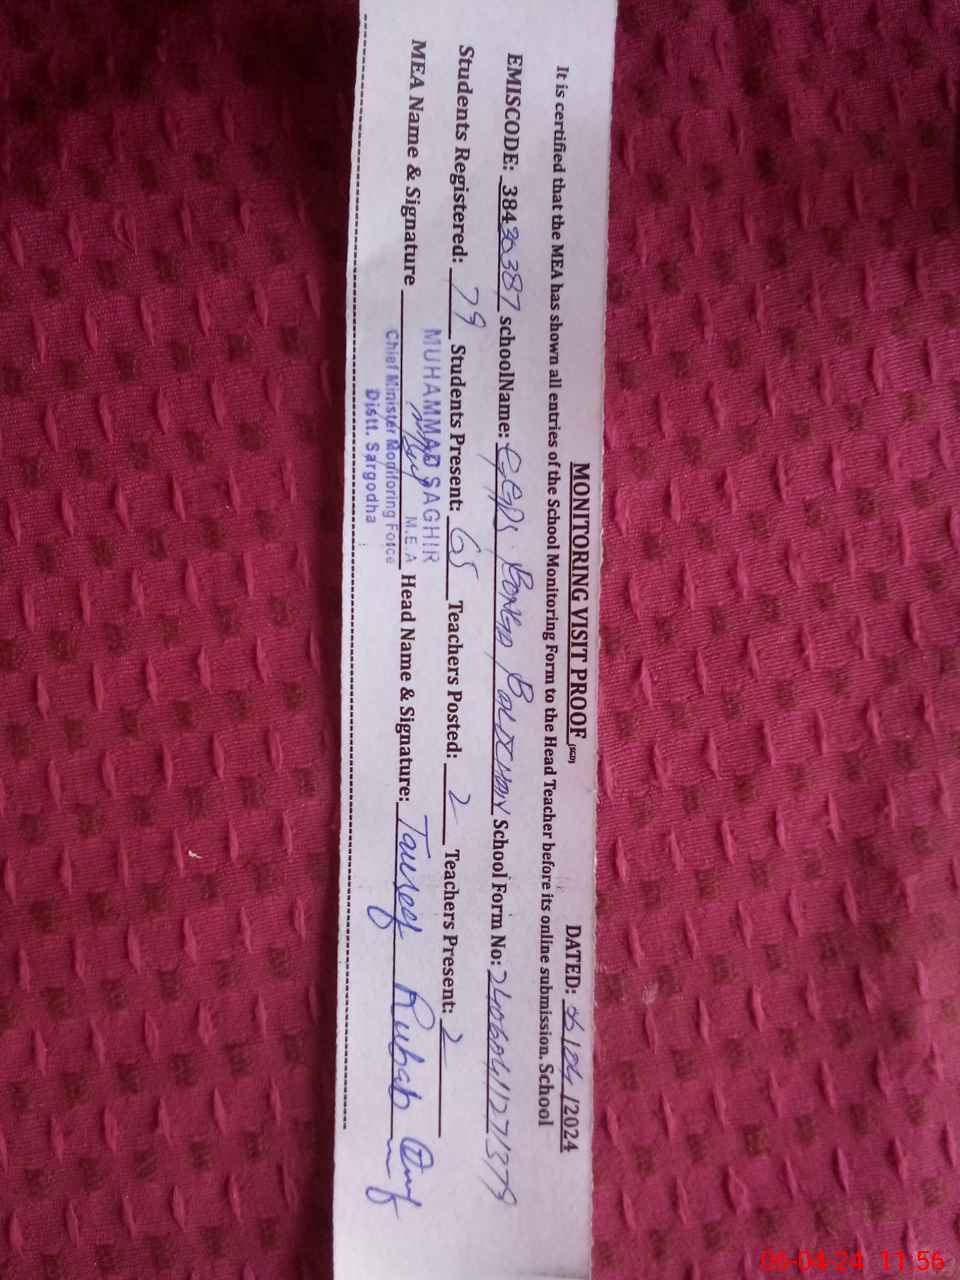 MONITORING VISIT PROOF (SGD) DATED: 06/04/2024
It is certified that the MEA has shown all entries of the School Monitoring Form to the Head Teacher before its online submission. School
EMISCODE: 38430387 schoolName: GGPS BONGA BALOCHAN School Form No: 24060411271379
Students Registered: 79 Students Present: 65 Teachers Posted: 2 Teachers Present: 2
MEA Name & Signature Head Name & Signature: Tauseef Rubab
MUHAMMAD SAGHIR
M.E.A
Chief Minister Monitoring Force
Distt. Sargodha
06-04-24 11:56